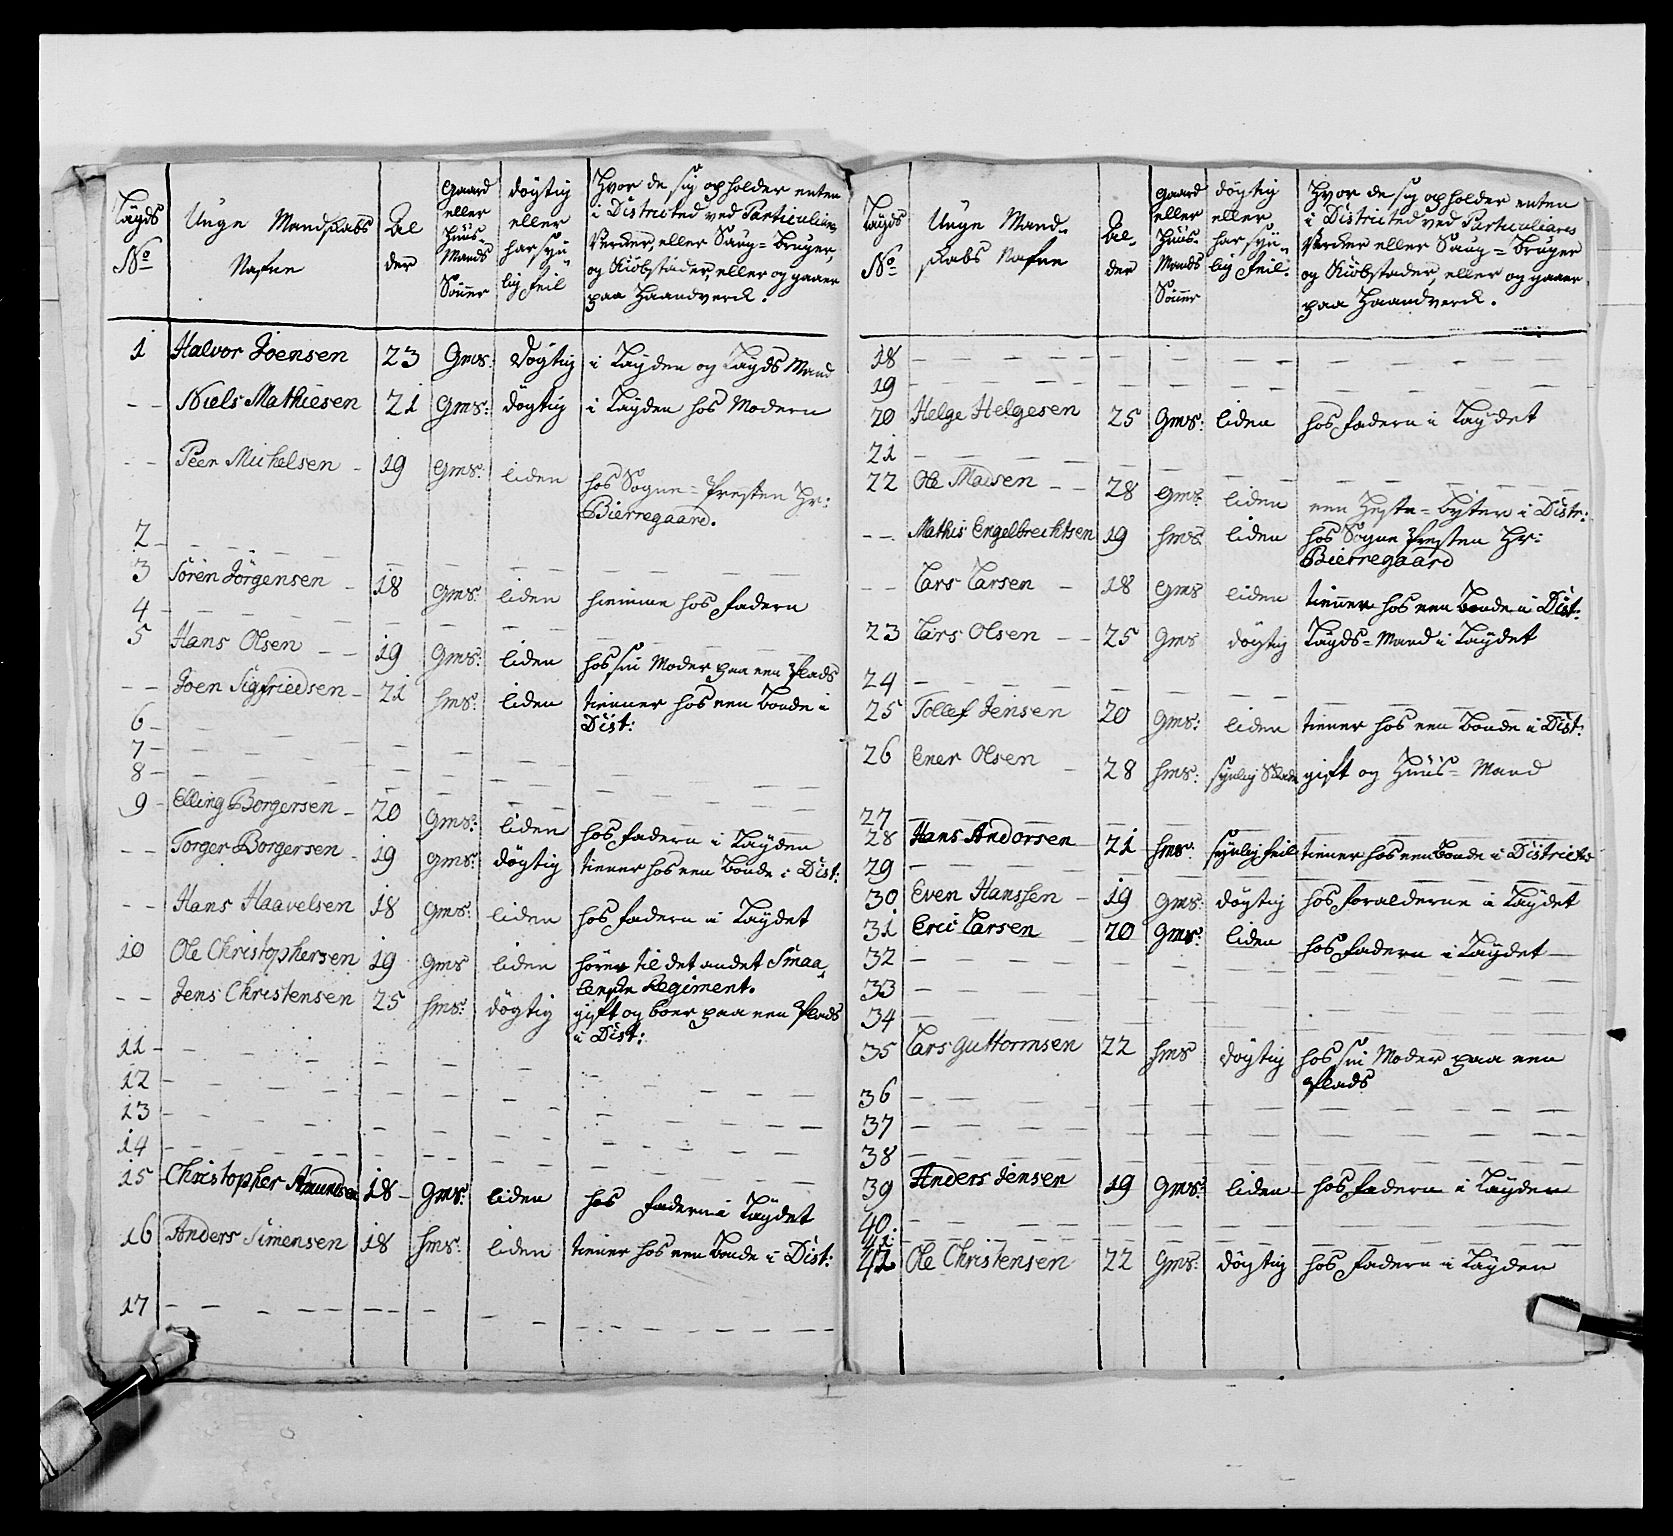 Lægds
No
Unge Mandskabs
Nafne
Al
der
Gaard
eller
Huus-
Mands
Sönner
dögtig
eller
har syn-
lig feil
Hvor de sig opholder enten
i Districted ved Particuliere
Verder, eller Saug=Bruger,
og Kiöbstæder, eller og gaaer
paa Haandverck.
1 Halvor Joensen 23 Gms: Dögtig i Lægden og Lægds Mand
- - Niels Mathiesen 21 Gms: dögtig i Lægden hos Modern
- - Peer Michelsen - 19 Gms: liden hos Sogne=Presten Hr:
Bierregaard.
2 - - - -
3 Sören Jörgensen - 18 Gms: liden hiemme hos fadern
4 - - - -
5 Hans Olsen - - 19 Gms: liden hos sin Moder paa een Plads
- - Joen Sigfriedsen - 21 hms: liden tienner hos een Bonde i
Dist:
6 - - - -
7 - - - -
8 - - - -
9 - Elling Borgersen - 20 Gms: liden hos fadern i Lægden
- - Torger Borgersen - 19 Gms: dögtig tiener hos een Bonde i Dist:
- - Hans Haavelsen 18 Gms: liden hos fadern i Lægdet
10 Ole Christophersen 19 Gms liden hörer til det andet Smaa
lenske Regiment.
- - Jens Christensen 25 hms: dögtig gift og boer paa een Plads
i Dist:
11 - - - -
12 - - - -
13 - - - -
14 - - - -
15 Christopher Amundsen 18 - Gms: liden hos fadern i Lægdet
16 Anders Simensen 18 hms: liden tiener hos een Bonde i Dist:
17 - - - -
Lægds
No
Unge Mand-
skabs Nafne
Al-
der
Gaard
eller
Huus-
Mands
Sönner
dögtig
eller
har syn-
lig feil.
Hvor de sig opholder enten
i Districted ved Particuliares
Verder eller Saug=Bruger
og Kiöbstæder, eller og gaaer
paa Haandverck.
18 - - - -
19 - - - -
20 Helge Helgesen 25 Gms: liden hos fadern i Lægdet
21 - - - -
22 Ole Madsen - - 28 Gms liden een Heste=byter i Distr:
- - Mathis Engelbrechtsen 19 hms liden hos Sogne Presten Hr:
Bierregaard
- - Lars Larsen - 18 Gms liden tienner hos een Bonde i Dist:
23 Lars Olsen - - 25 Gms dögtig Lægds=Mand i Lægdet
24 - - - -
25 Tollef Jensen 20 Gms: liden tiener hos een Bonde i Dist:
26 Ener Olsen - 28 hms: synlig Skade gift og Huus=Mand
27 - - - -
28 Hans Andorsen 21 hms. synlig feil tiener hos een Bonde i Districtet
29 - - - -
30 Even Hanssen - 19 Gms: dögtig hos foralderne i Lægdet
31 Eric Larsen - 20 Gms: liden hos fadern i Lægdet -
32 - - - -
33 - - - -
34 - - - -
35 Lars Guttormsen 22 hms dögtig hos sin Moder paa een
Plads
36 - - - -
37 - - - -
38 - - - -
39 Anders Jensen 19 Gms: liden - hos fadern i Lægden
40. - - - -
41: - - - -
42 Ole Christensen 22 Gms: dögtig hos fadern i Lægden